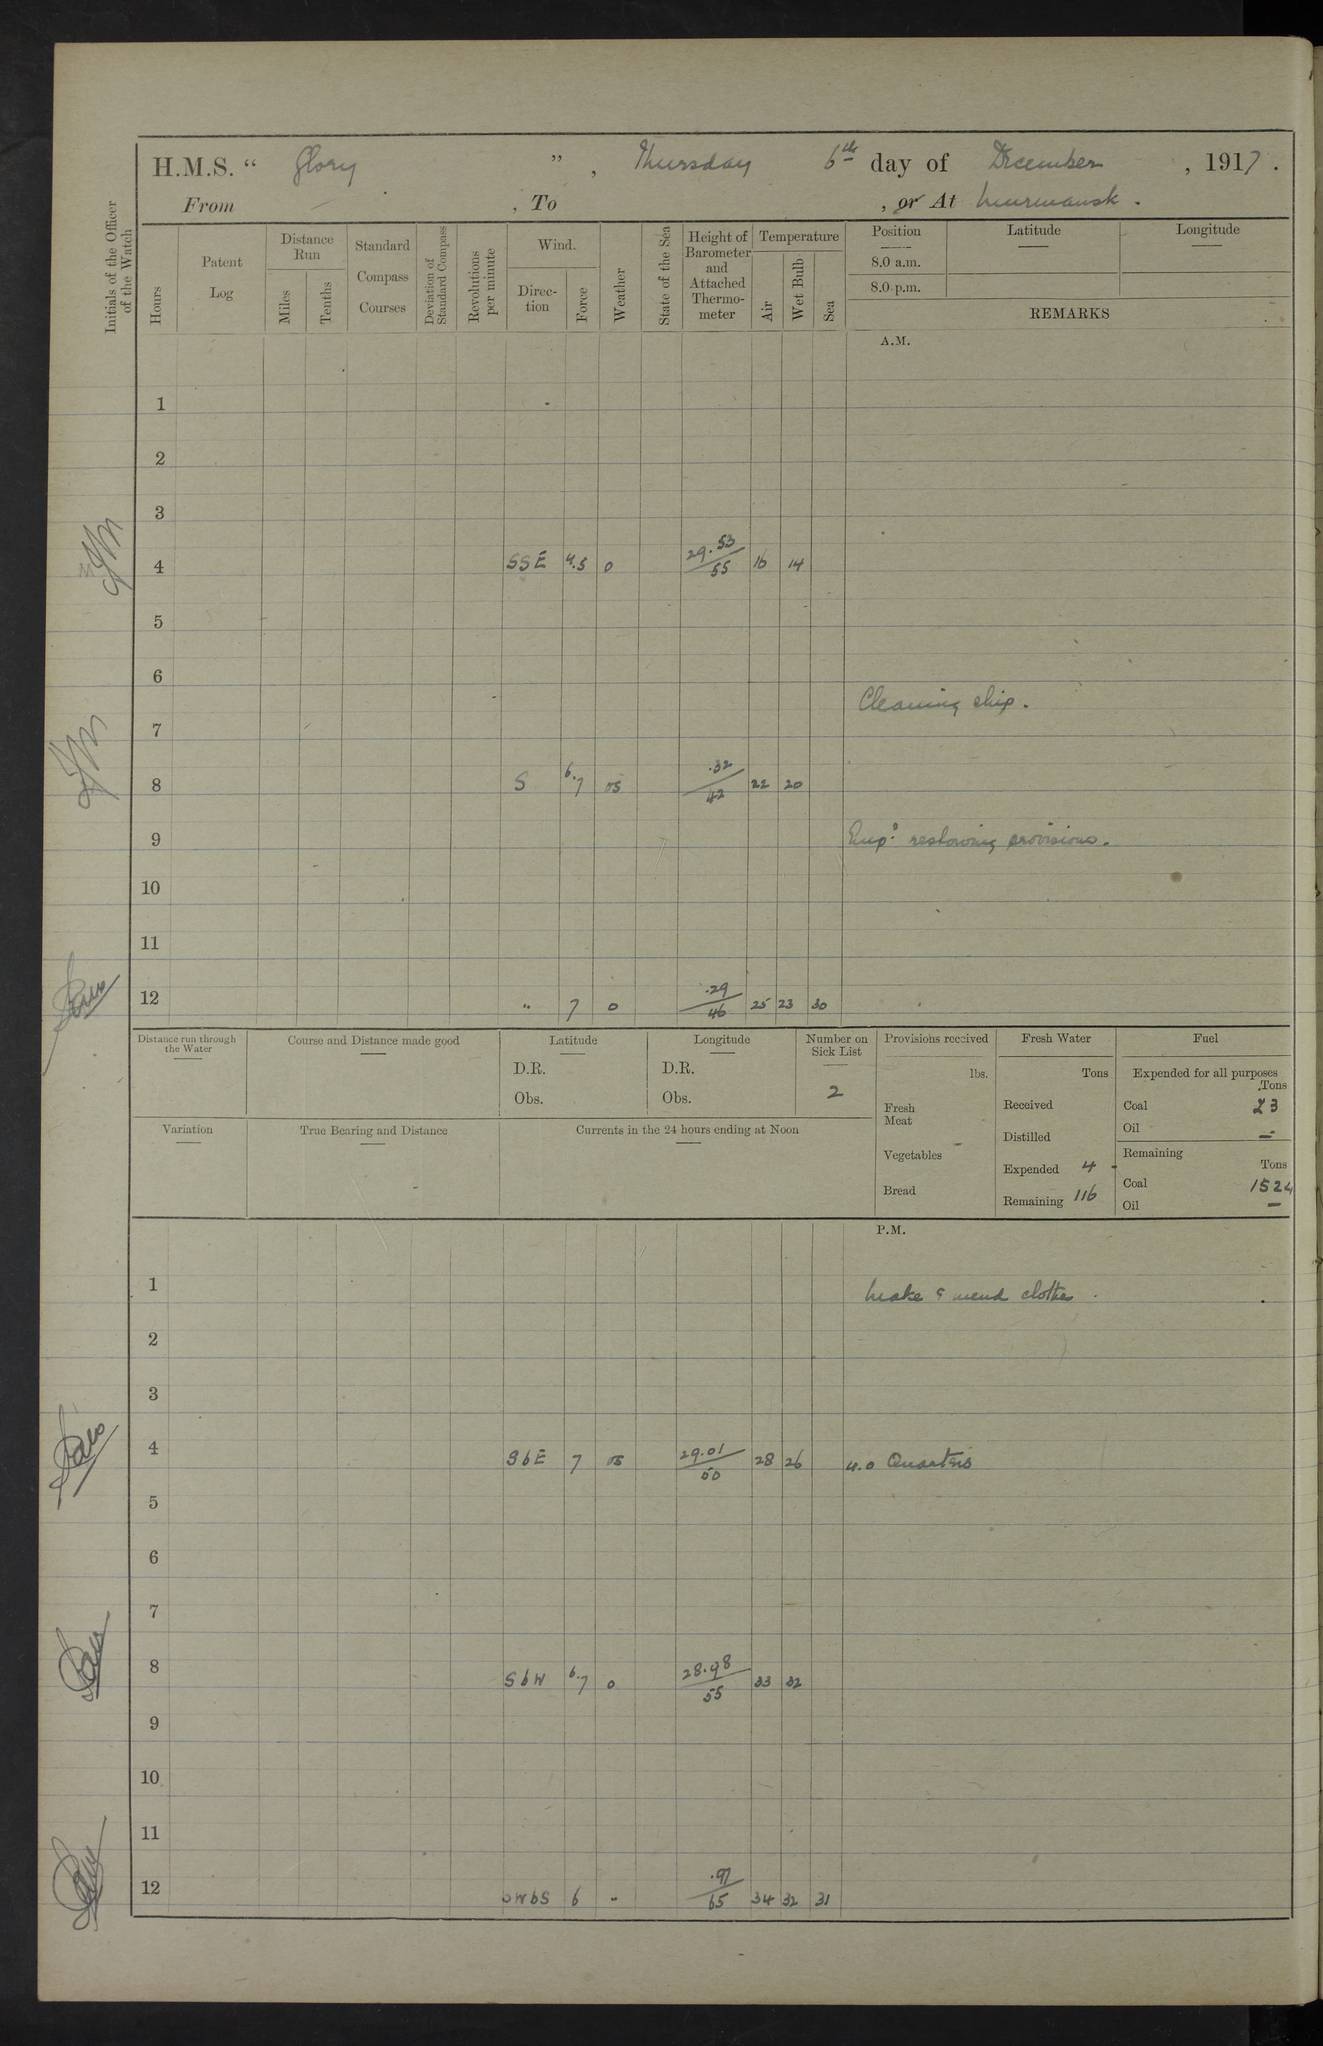 H.M.S. “ Glory ” , Thursday 6th day of December , 1917 .
From — , To , or At Murmansk .
Initials of the Officer of the Watch
Hours
Patent Log
Distance Run
Miles
Tenths
Standard Compass Courses
Deviation of Standard Compass
Revolutions per minute
Wind.
Direc- tion
Force
Weather
State of the Sea
Height of Barometer and Attached Thermo- meter
Temperature
Air
Wet Bulb
Sea
Position
8.0 a.m.
8.0 p.m.
Latitude
Longitude
REMARKS
A.M.
1
2
3
4 SSE 4.5 o 29.53/55 16 14
5
6
Cleaning ship.
7
8 S 6.7 os .32/42 22 20
9 Empd restowing provisions.
10
11
12 " 7 o .29/46 25 23 30
Distance run through the Water
Course and Distance made good
Latitude
D.R.
Obs.
Longitude
D.R.
Obs.
Number on Sick List
2
Provisions received
lbs.
Fresh Meat
Vegetables –
Bread
Fresh Water
Tons
Received
Distilled
Expended 4 -
Remaining 116
Fuel
Expended for all purposes
Tons
Coal 23
Oil —
Remaining
Tons
Coal 1524
Oil —
Variation
True Bearing and Distance
Currents in the 24 hours ending at Noon
P.M.
1 Make & mend clothes .
2
3
4 SbE 7 os 29.01/50 28 26 4.0 Quarters
5
6
7
8 SbW 6.7 o 28.98/55 33 32
9
10
11
12 SWbS 6 " .97/65 34 32 31